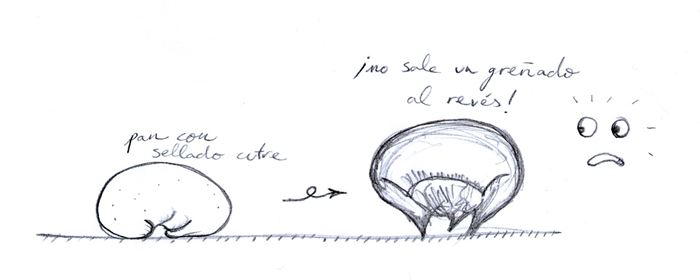 pan con
sellado cutre
¡no sale un greñado
al revés!